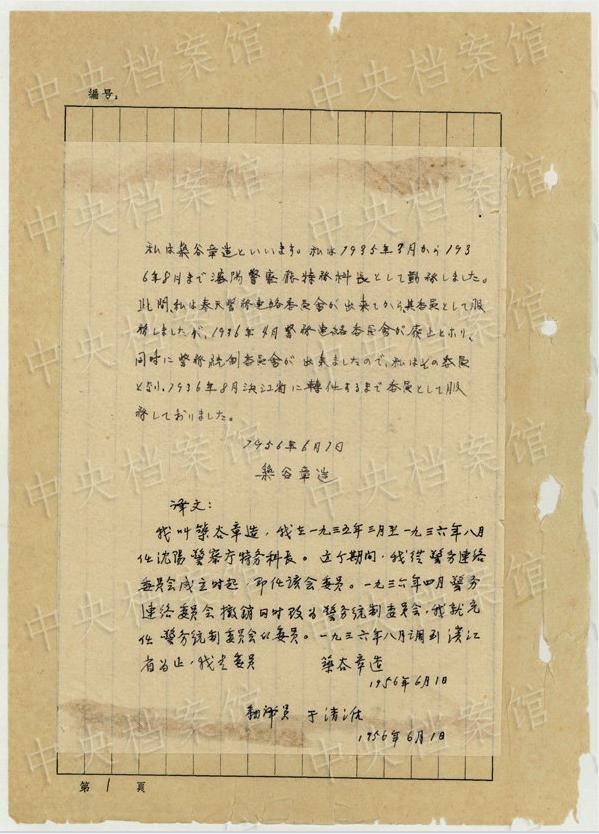 中央档案馆
編号：
私は築谷章造といいます。私は1935年3月から193
6年8月まで瀋陽警察廳特務科長として勤務しました。
此間、私は奉天警務連絡委員会が出来てから、其委員として服
務しましたが、1936年4月警務連絡委員会が廃止となり、
同時に警務統制委員会が出来ましたので、私はその委員
となり、1936年8月浜江省に轉任するまで委員として服
務しておりました。
1956年6月1日
築谷章造
译文：
我叫築谷章造，我在一九三五年三月至一九三六年八月
任沈阳警察厅特务科长。这个期间，我从警务連络
委員会成立时起，即任該会委員。一九三六年四月警务
連络委員会撤銷同时改为警务統制委員会，我就充
任警务統制委員会的委員。一九三六年八月调到濱江
省为止，我是委員
築谷章造
1956年6月1日
翻译員 于清
1956年6月1日
第1頁